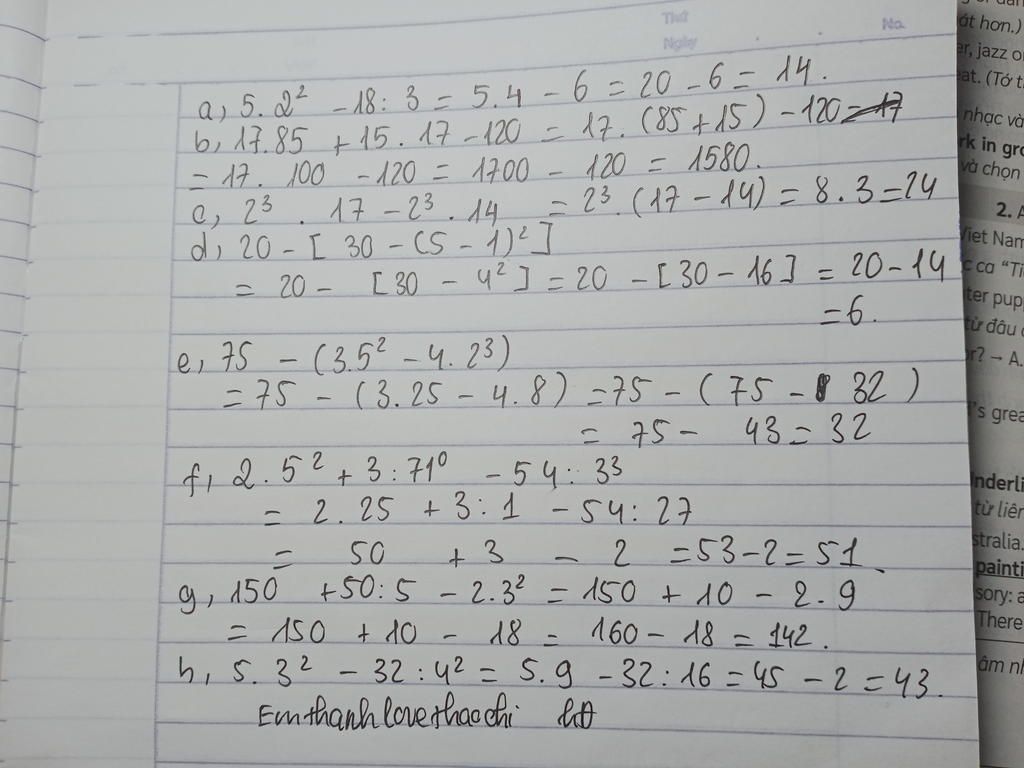 Thứ
Ngày
No.
a, 5.2² - 18: 3 = 5.4 - 6 = 20 - 6 = 14.
b, 17.85 + 15. 17 - 120 = 17. (85 + 15) - 120 = 17
= 17. 100 - 120 = 1700 - 120 = 1580.
c, 2³ . 17 - 2³ . 14 = 2³. (17 - 14) = 8 . 3 = 24
d, 20 - [ 30 - (5 - 1)² ]
= 20 - [30 - 4²] = 20 - [30 - 16] = 20 - 14
= 6.
e, 75 - (3.5² - 4. 2³)
= 75 - (3.25 - 4.8) = 75 - (75 - 32)
= 75 - 43 = 32
f, 2.5² + 3: 71⁰ - 54: 33
= 2.25 + 3: 1 - 54: 27
= 50 + 3 - 2 = 53 - 2 = 51.
g, 150 + 50: 5 - 2.3² = 150 + 10 - 2.9
= 150 + 10 - 18 = 160 - 18 = 142.
h, 5. 3² - 32: 4² = 5.9 - 32: 16 = 45 - 2 = 43.
Emthanhlovethaochi
át hơn.)
er, jazz o
eat. (Tớ t
nhạc và
rk in gro
và chọn
2. A
Viet Nam
c ca "Tiế
ter pupp
từ đâu
or? → A.
's grea
Inderli
từ liên
stralia.
painti
sory: a
There
âm nh